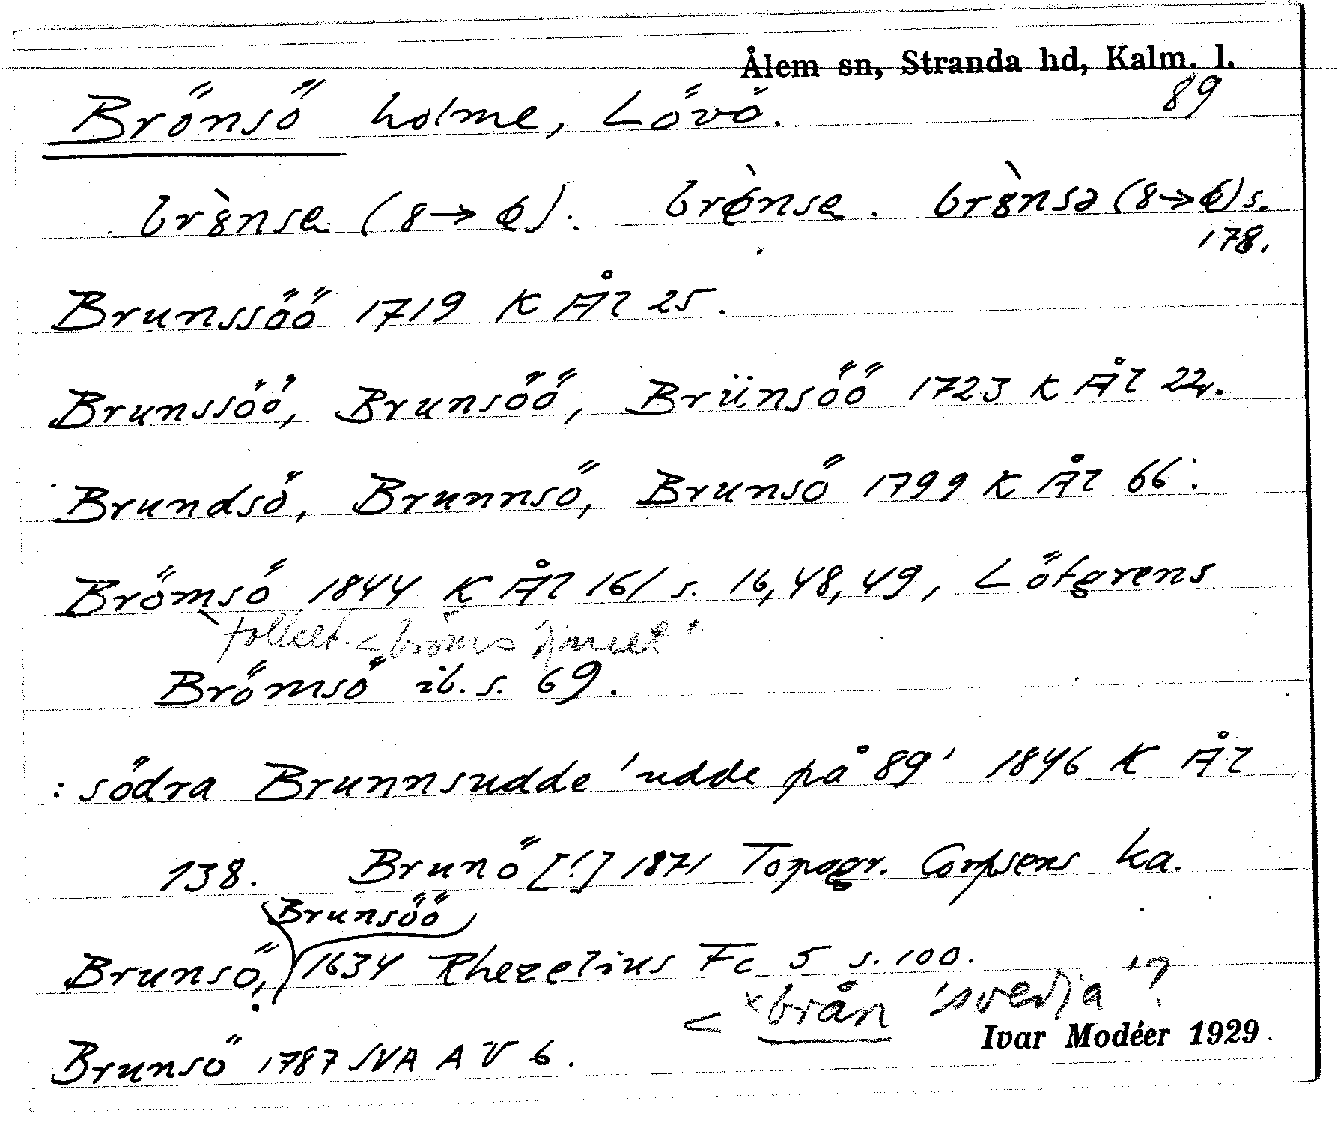 Ålem sn, Stranda hd, Kalm. l.
Brönsö holme, Lövö. 89
brø̀nse (8→ϕ). brø̀nse. brø̀nsə (8→ϕ) s.
178.
Brunssöö 1719 K Ål 25.
Brunssöö, Brunsöö, Brünsöö 1723 K Ål 22.
Brundsö, Brunnsö, Brunsö 1799 K Ål 66.
Brömsö 1844 K Ål 161 s. 16, 48, 49, Lötgrens
folket. < bröms
Brömsö ib. s. 69.
: södra Brunnsudde 'udde på 89' 1846 K Ål
138. Brunö [!] 1871 Topogr. Corpsens ka.
Brunsöö
Brunsö, 1634 Rhezelius Fc 5 s. 100.
< *brån 'svedja'?
Ivar Modéer 1929.
Brunsö 1787 SVA A V 6.